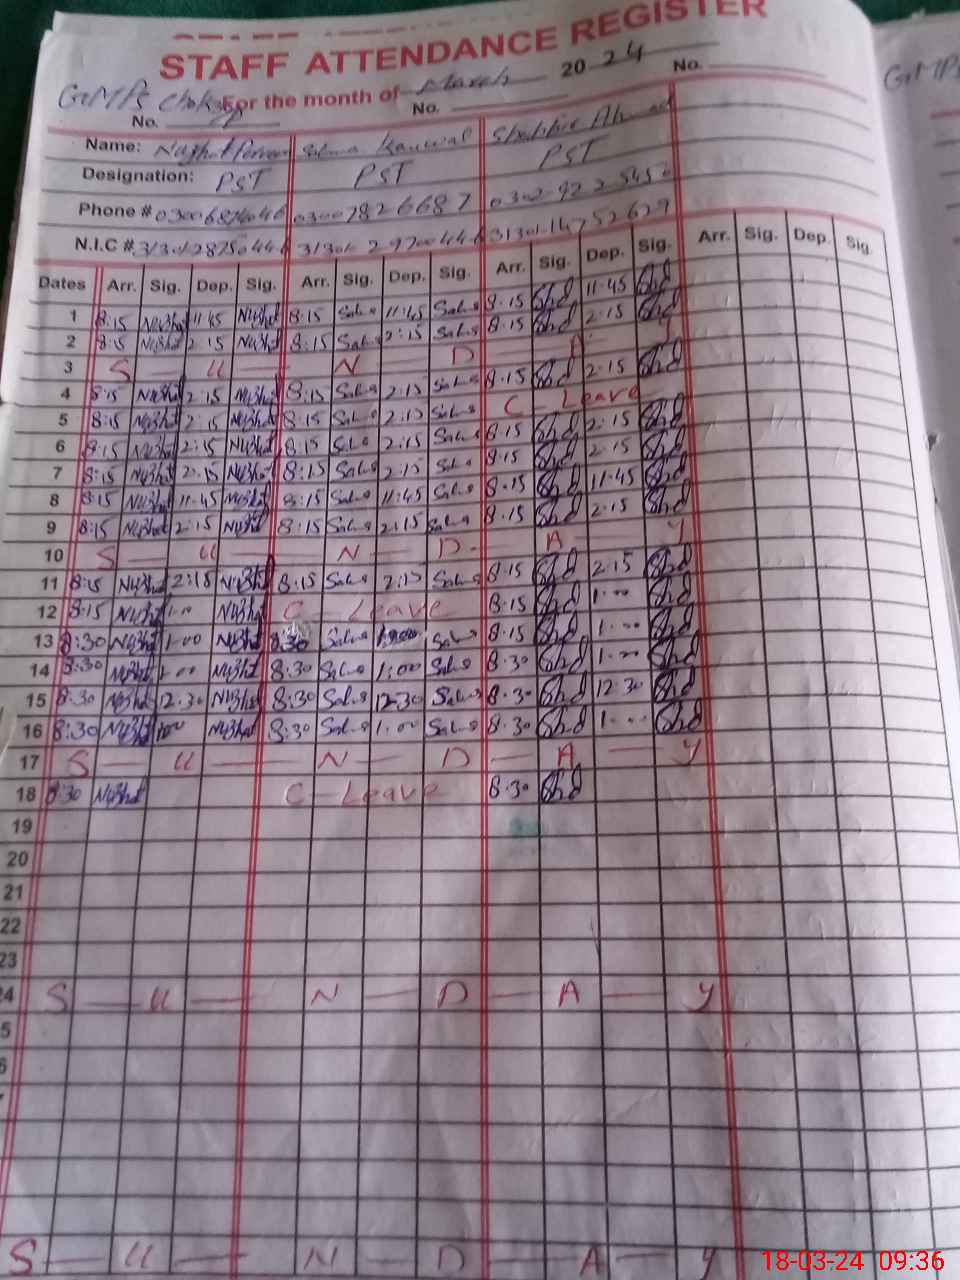 STAFF ATTENDANCE REGISTER
GGMPS For the month of March 2024 No.
No. No.
Name: Nuzhat Parveen Salma Kanwal Shabbir Ahmad
Designation: PST PST PST
Phone # 03007826687
N.I.C #
Dates Arr. Sig. Dep. Sig. Arr. Sig. Dep. Sig. Arr. Sig. Dep. Sig. Arr. Sig. Dep. Sig.
1 8:15 Nuzhat 11:45 Nuzhat 8:15 Salma 11:45 Salma 8.15 Shd 11.45 Shd
2 8:15 Nuzhat 2:15 Nuzhat 8:15 Salma 2:15 Salma 8.15 Shd 2.15 Shd
3 S — U — N — D — A — Y
4 8:15 Nuzhat 2:15 Nuzhat 8:15 Salma 2:15 Salma 8.15 Shd 2.15 Shd
5 8:15 Nuzhat 2:15 Nuzhat 8:15 Salma 2:15 Salma C — Leave
6 8:15 Nuzhat 2:15 Nuzhat 8:15 Salma 2:15 Salma 8.15 Shd 2.15 Shd
7 8:15 Nuzhat 2:15 Nuzhat 8:15 Salma 2:15 Salma 8.15 Shd 2.15 Shd
8 8:15 Nuzhat 11:45 Nuzhat 8:15 Salma 11:45 Salma 8.15 Shd 11.45 Shd
9 8:15 Nuzhat 2:15 Nuzhat 8:15 Salma 2:15 Salma 8.15 Shd 2.15 Shd
10 S — U — N — D — A — Y
11 8:15 Nuzhat 2:15 Nuzhat 8:15 Salma 2:15 Salma 8.15 Shd 2.15 Shd
12 8:15 Nuzhat 1:00 Nuzhat C — Leave 8.15 Shd 1.00 Shd
13 8:30 Nuzhat 1:00 Nuzhat 8:30 Salma Salma 8.15 Shd 1.00 Shd
14 8:30 Nuzhat 1:00 Nuzhat 8:30 Salma 1:00 Salma 8.30 Shd 1.00 Shd
15 8:30 Nuzhat 12:30 Nuzhat 8:30 Salma 12:30 Salma 8.30 Shd 12.30 Shd
16 8:30 Nuzhat 1:00 Nuzhat 8:30 Salma 1:00 Salma 8.30 Shd 1.00 Shd
17 S — U — N — D — A — Y
18 8:30 Nuzhat C — Leave 8.30 Shd
19
20
21
22
23
24 S — U — N — D — A — Y
5
6
S — U — N — D — A — Y
18-03-24 09:36